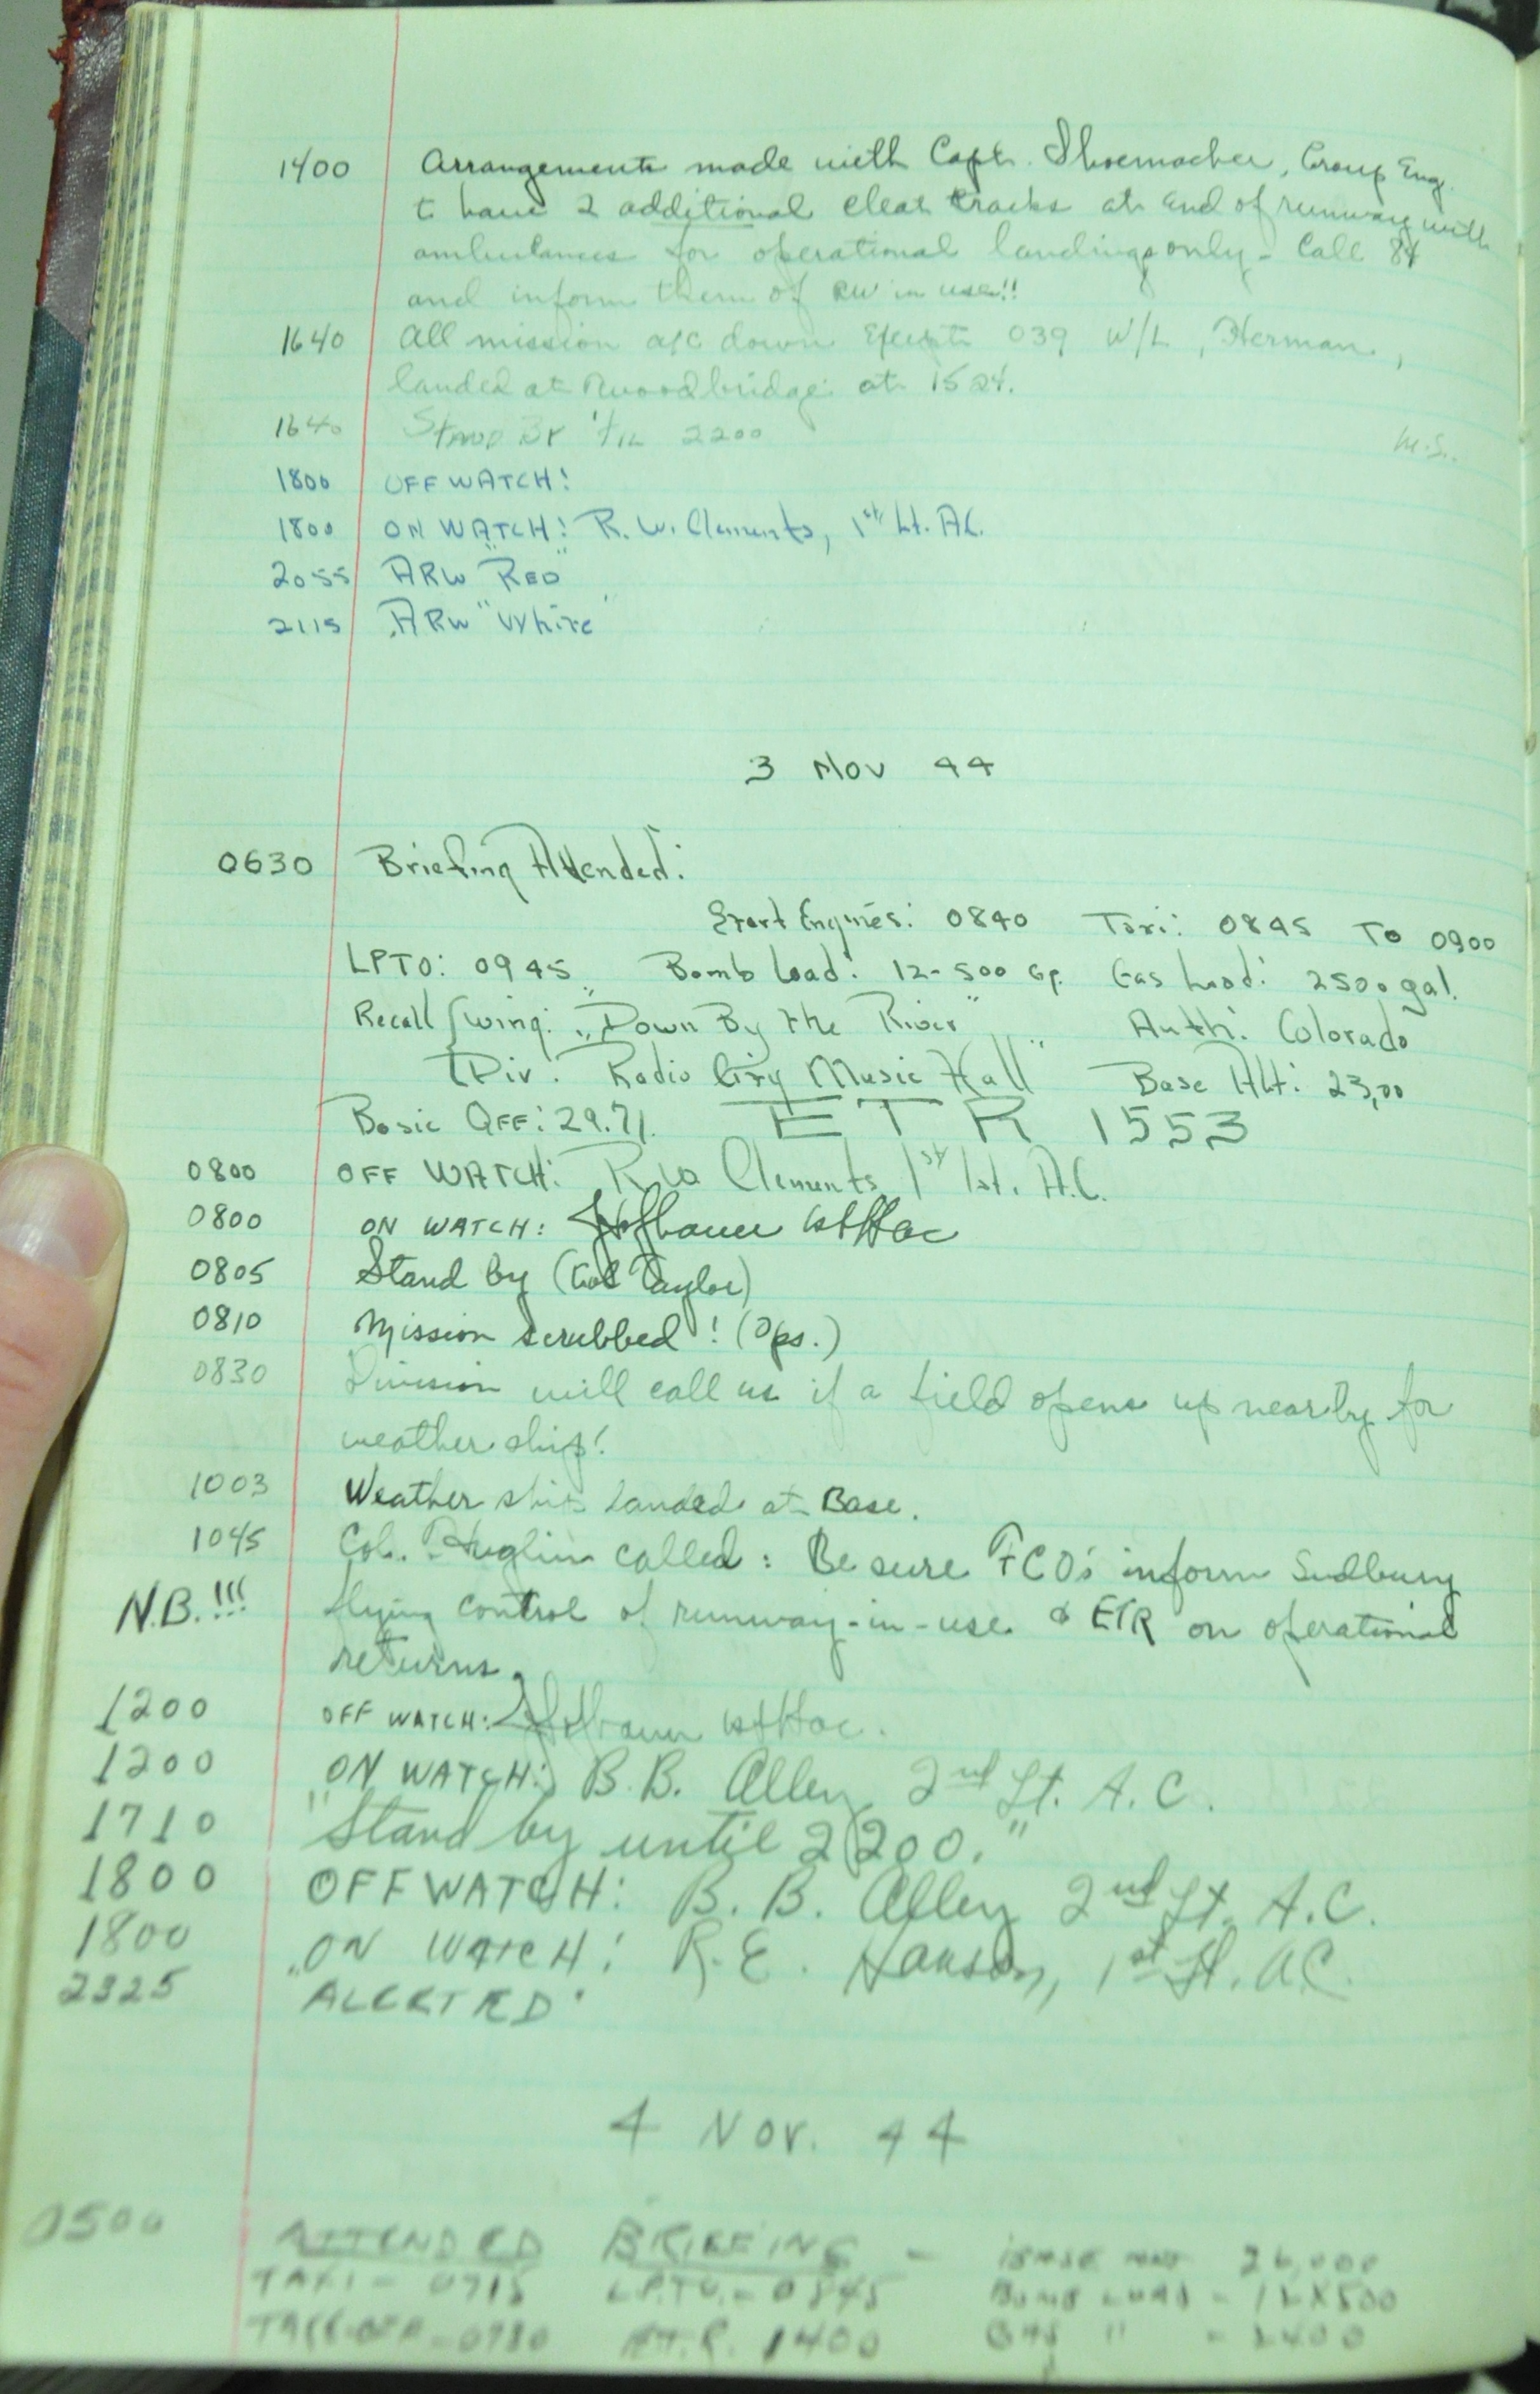 1400 Arrangements made with Capt. Shoemacher, Group Eng.
to have 2 additional cleat tracks at end of runway with
ambulances for operational landings only - Call 84
and inform them of RW in use!!
1640 All mission a/c down except 039 W/L, Herman,
landed at Woodbridge at 1524.
1640 Stand By 'til 2200 M.S.
1800 OFF WATCH!
1800 ON WATCH! R. W. Clements, 1st Lt. AC.
2055 ARW "RED"
2115 ARW "White"
3 Nov 44
0630 Briefing Attended:
Start Engines: 0840 Taxi: 0845 TO 0900
LPTO: 0945 Bomb Load: 12-500 Gp. Gas Load: 2500 gal.
Recall Wing: "Down By the River" Auth: Colorado
Div: Radio City Music Hall" Base Alt: 23,00
Basic QFF: 29.71. ETR 1553
0800 OFF WATCH: R W Clements 1st Lt. A.C.
0800 ON WATCH:
0805 Stand by (Col Taylor)
0810 Mission scrubbed! (Ops.)
0830 Division will call us if a field opens up nearby for
weather ship!
1003 Weather ship landed at Base.
1045 Col. Huglin called: Be sure FCO's inform Sudbury
N.B.!!! flying control of runway-in-use & ETR on operational
returns.
1200 OFF WATCH:
1200 ON WATCH: B.B. Alley 2nd Lt. A.C.
1710 "Stand by until 2200."
1800 OFF WATCH: B. B. Alley 2nd Lt. A.C.
1800 ON WATCH: R.E. Hanson, 1st Lt. A.C.
2325 "ALERTED"
4 Nov. 44
0500 ATTENDED BRIEFING - BASE ALT 26,000
TAXI - 0715 LPTO. - 0845 BOMB LOAD - 12X500
TAKE-OFF - 0730 E.T.R. 1400 GAS " - 2400